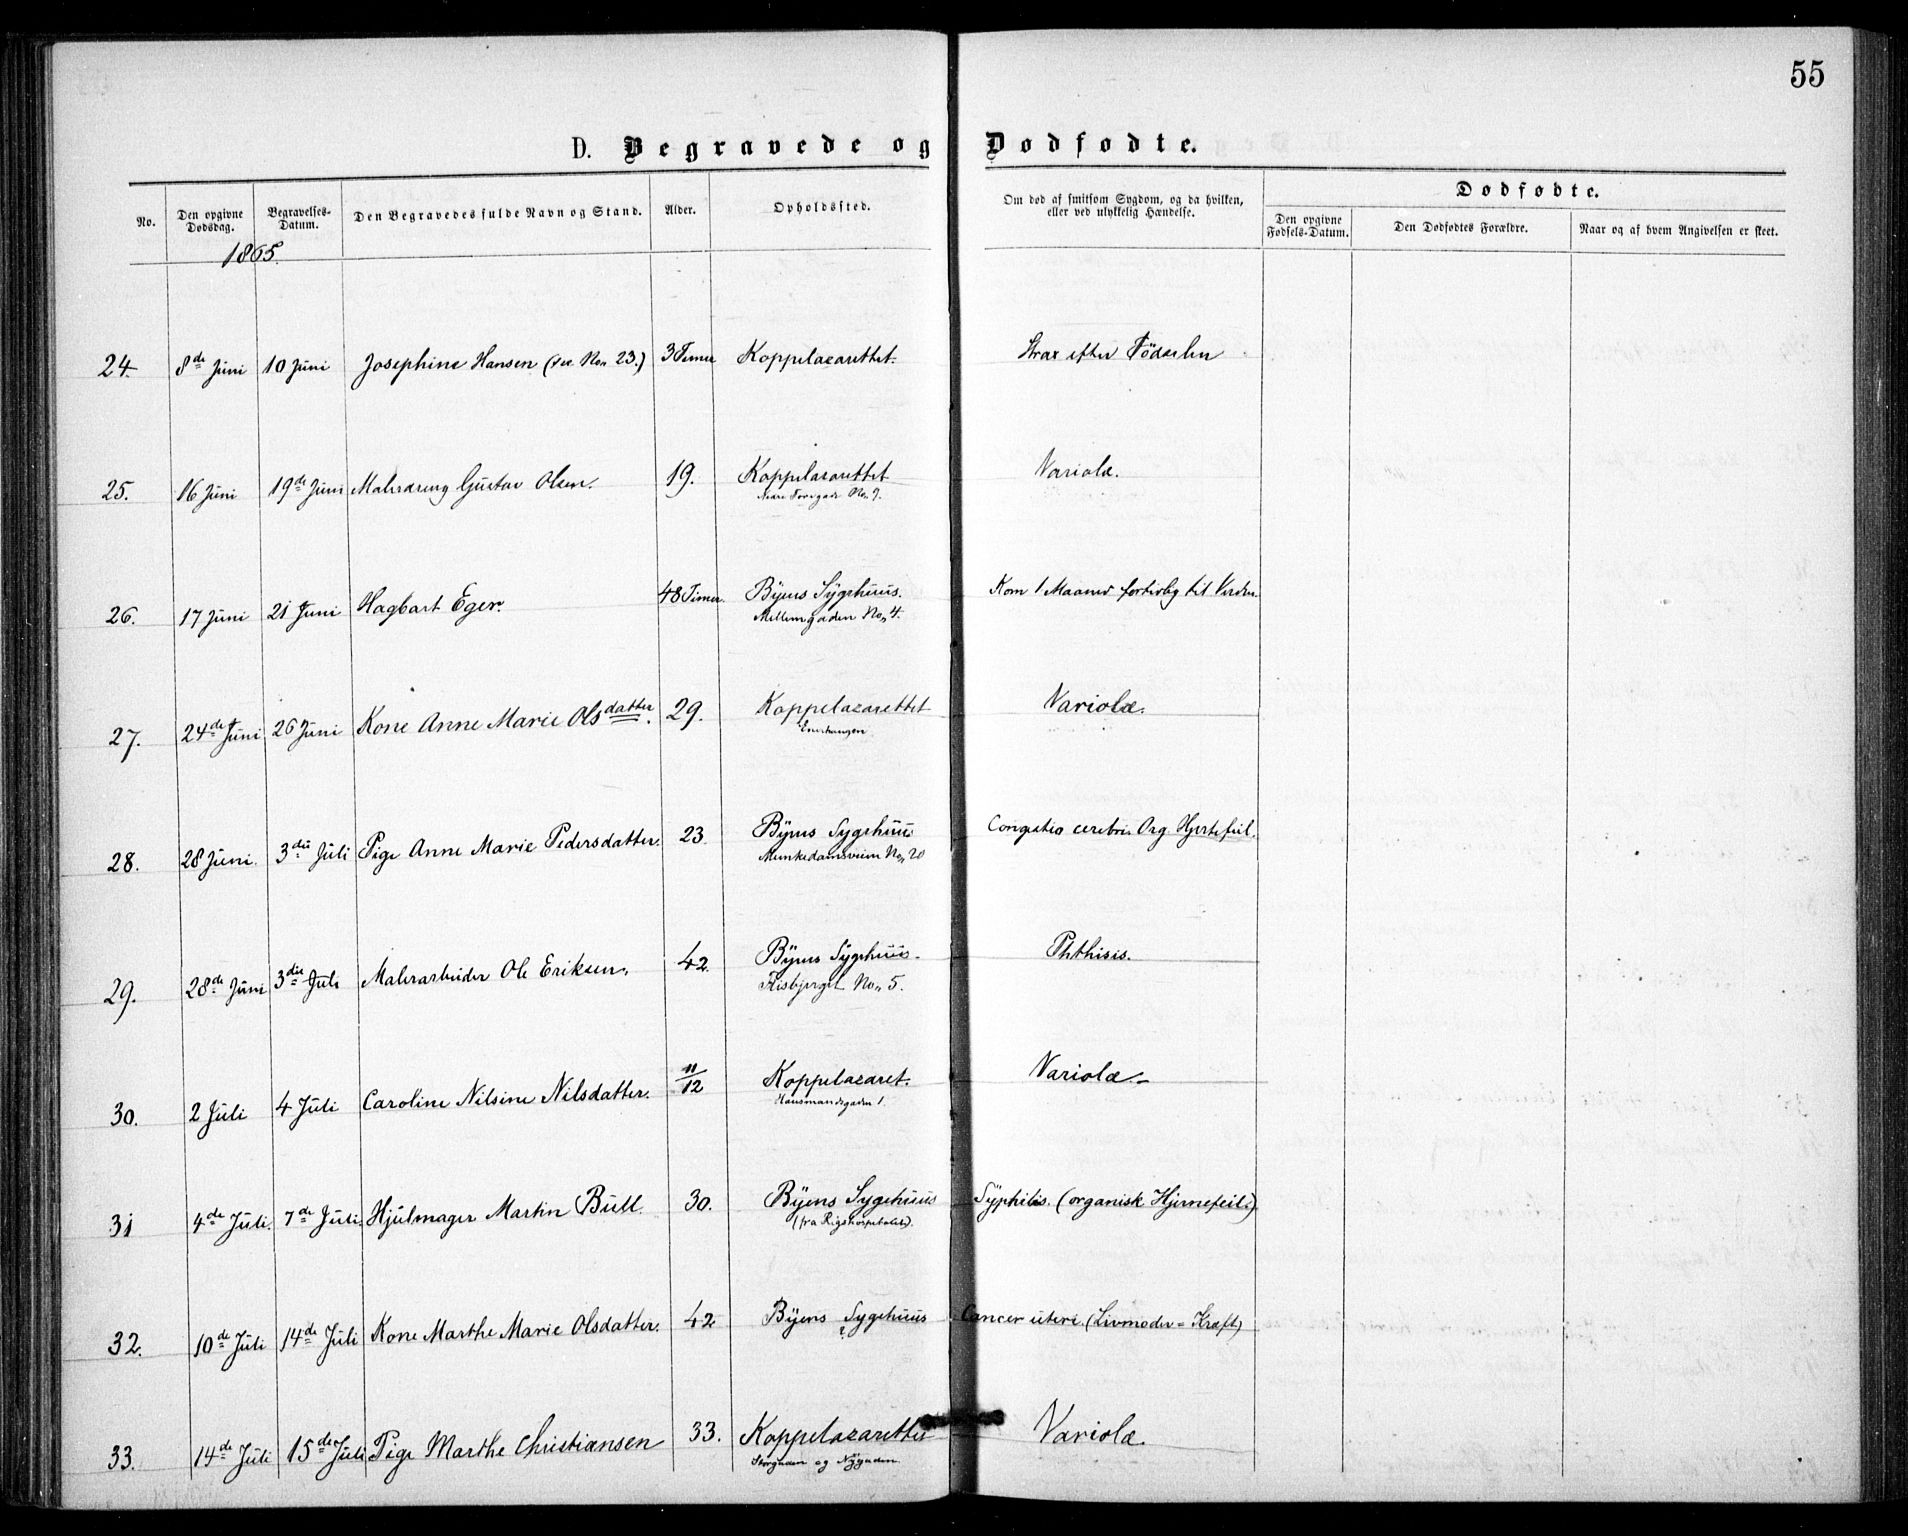 55
D. Begravede og Dødfødte.
No. Den opgivne Dødsdag. Begravelses-Datum. Den Begravedes fulde Navn og Stand. Alder. Opholdssted. Om død af smitsom Sygdom, og da hvilken, eller ved ulykkelig Hændelse. Dødfødte.
Den opgivne Fødsels-Datum. Den Dødfødtes Forældre. Naar og af hvem Angivelsen er skeet.
1865.
24. 8de Juni 10 Juni Josephine Hansen (see No. 23.) 3 Timer Koppelazarettet. Strax efter Födselen
25. 16 Juni 19de Juni Malerdreng Gustav Olsen. 19. Koppelazarettet Variolæ.
Nedre Torvgade No. 9.
26. 17 Juni 21 Juni Hagbart Eger. 48 Timer. Byens Sygehuus. Kom 1 Maaned fortidlig til Verden.
Mellemgaden No. 4.
27. 24de Juni 26 Juni Kone Anne Marie Olsdatter. 29. Koppelazarettet Variolæ.
Enerhaugen
28. 28 Juni. 3die Juli Pige Anne Marie Pedersdatter. 23 Byens Sygehuus Congestio cerebri. Org. Hjertefeil.
Munkedamsveien No. 20
29. 28de Juni 3die Juli Malerarbeider Ole Eriksen. 42. Byens Sygehuus. Phthisis.
Flisbjerget No. 5.
30. 2 Juli 4 Juli Caroline Nilsine Nilsdatter. 11/12 Koppelazaret. Variolæ.
Hausmandsgaden 1.
31 4de Juli. 7de Juli. Hjulmager Martin Bull. 30. Byens Sygehuus Syphilis. (organisk Hjernefeil).
(fra Rigshospitalet).
32. 10de Juli 14de Juli Kone Marthe Marie Olsdatter. 42 Byens Sygehuus Cancer uteri. (Livmoder = Kræft)
?
33. 14de Juli 15de Juli Pige Marthe Christiansen 33. Koppelazarettet Variolæ.
Storgaden og Nygaden.